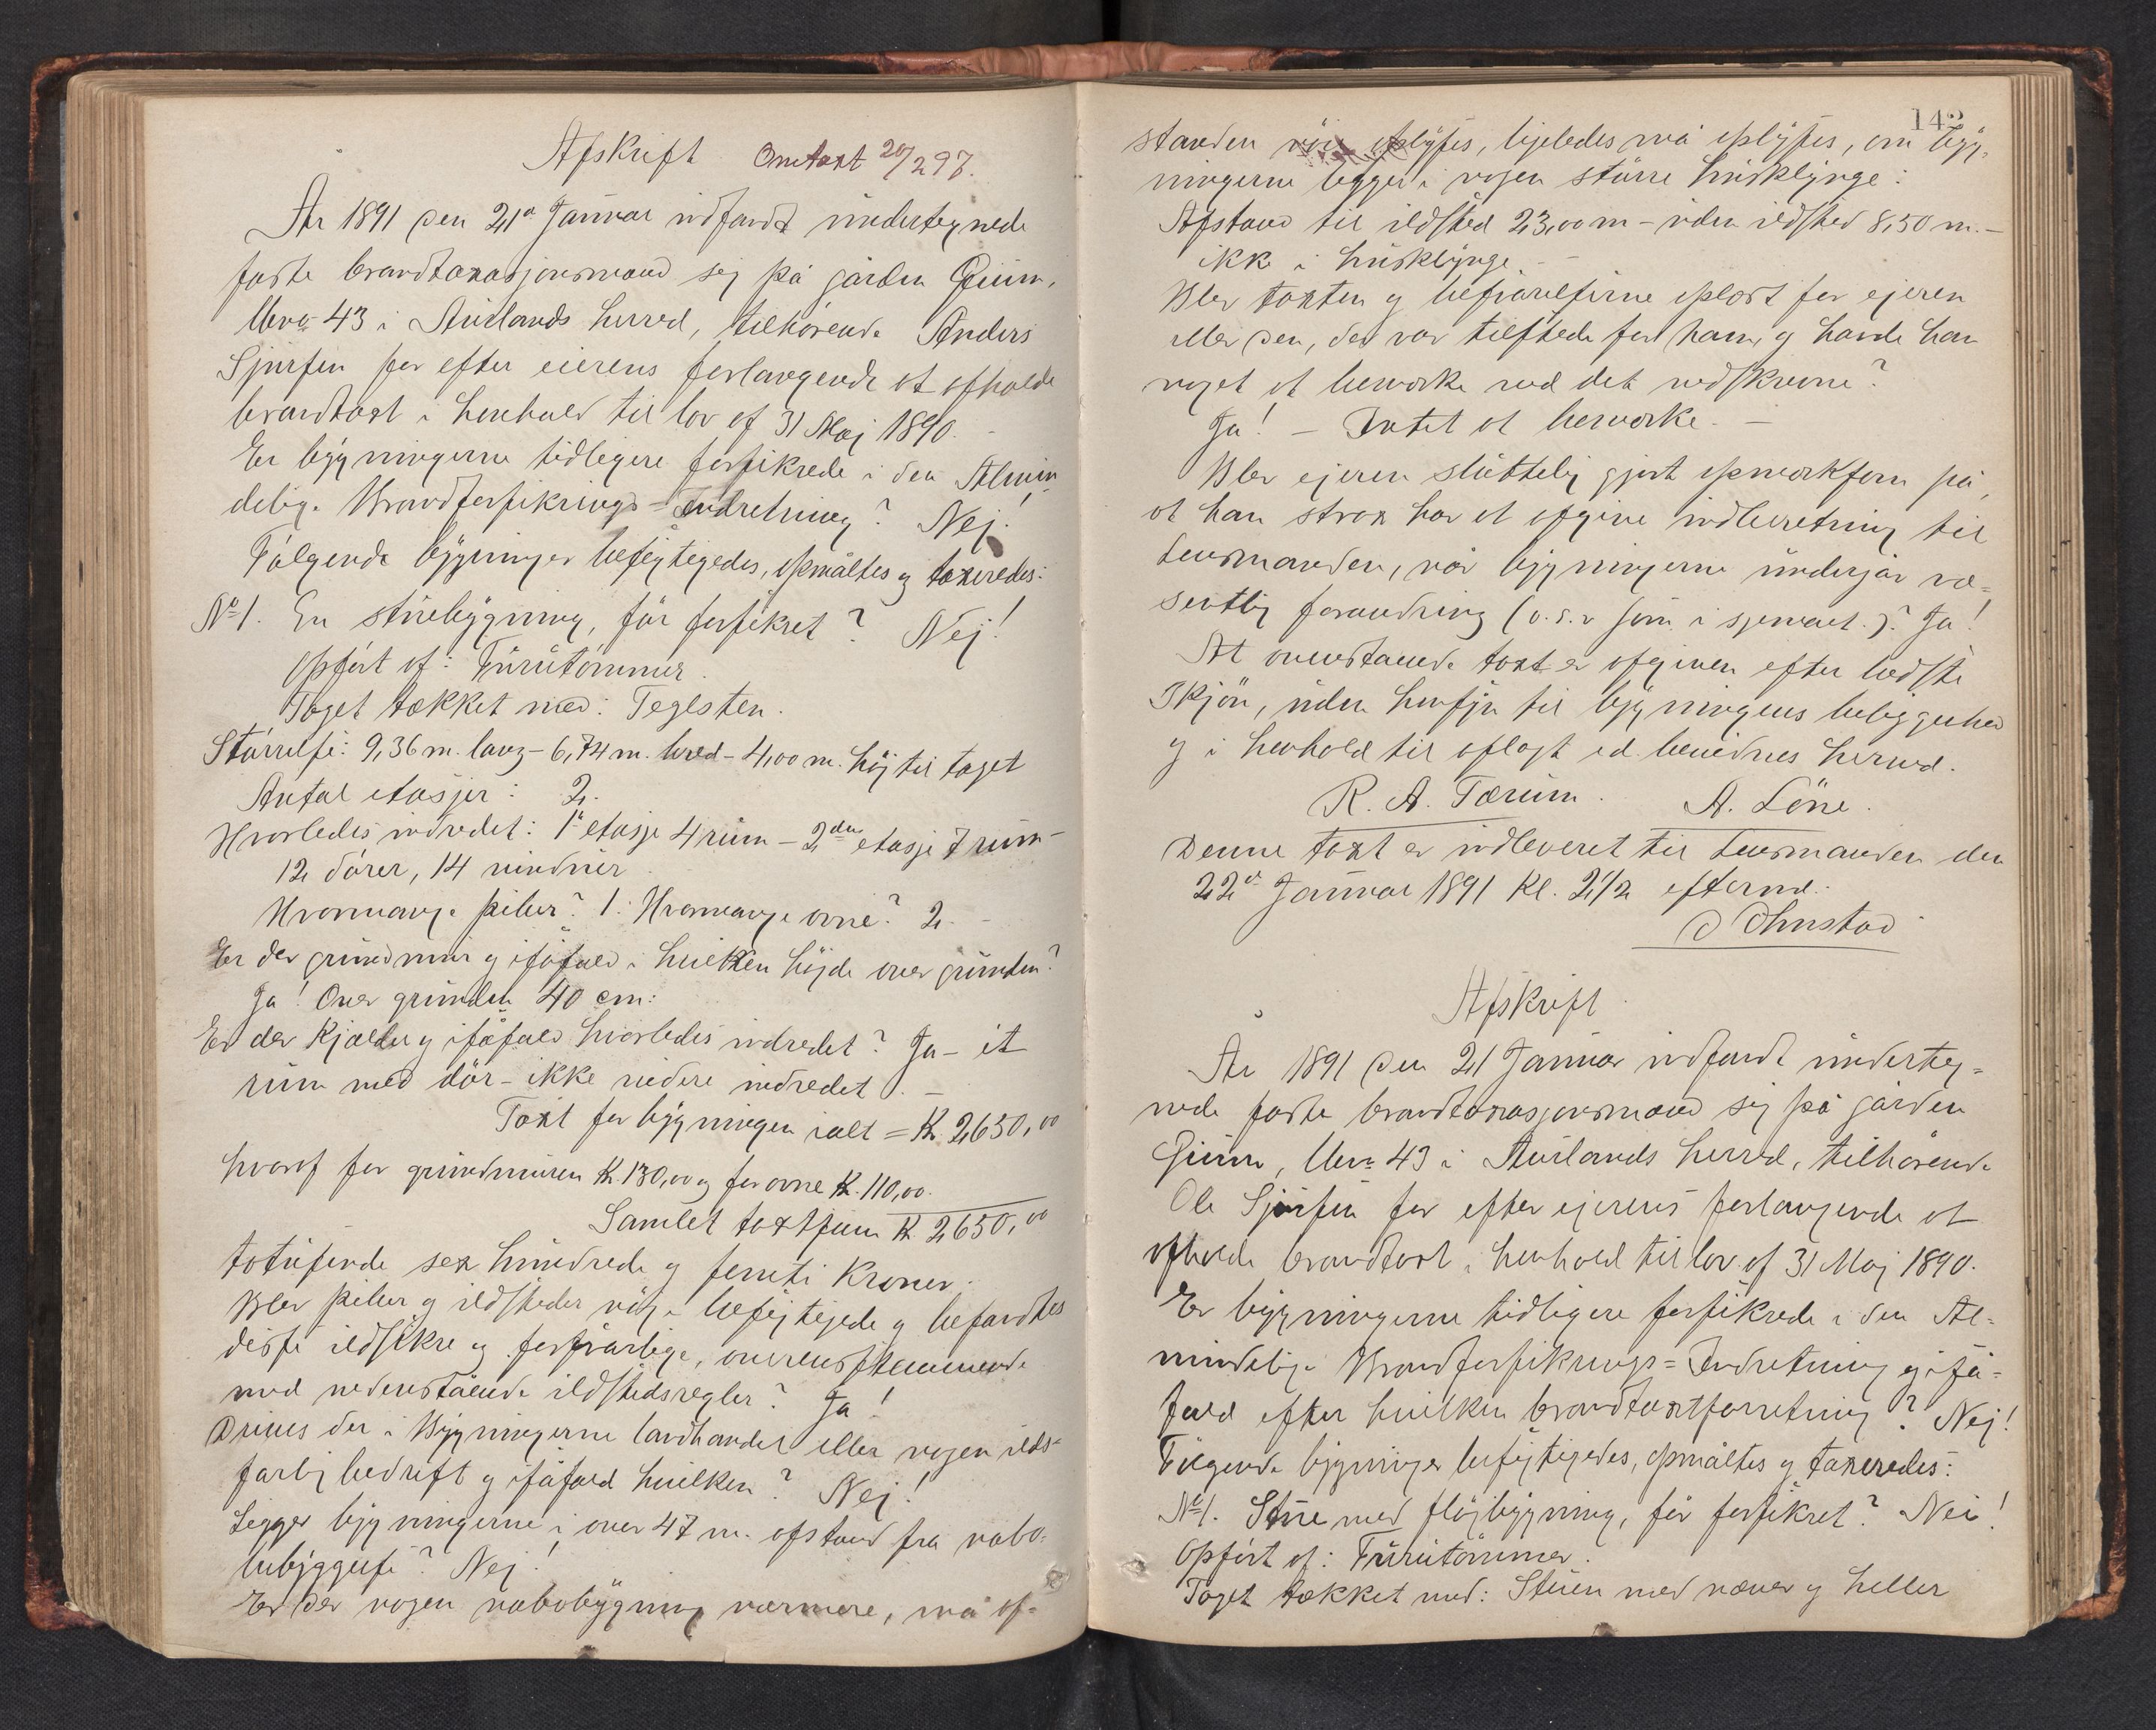 Afskrift Omtaxt 20/2 97.
År 1891 den 21de Januar indfandt undertegnede
faste brandtaxasjonsmænd sig på gården Gjeim,
Mno 43 i Aurlands herred, tilhørende Anders
Sjursen for efter eierens forlangende at afholde
brandtaxt i henhold til lov af 31 Maj 1890.
Er bygningerne tidligere forsikrede i den Almin-
delige Brandforsikrings-Indretning? Nej!
Følgende bygninger besigtigedes, opmåltes og taxeredes:
No 1. En stuebygning, før forsikret? Nej!
Opført af: Furutømmer.
Taget tækket med: Teglsten.
Størrelse: 9,36 m. lang - 6,74 m. bred - 4,00 m. høj til taget
Antal etasjer: 2.
Hvorledes indredet: 1ste etasje 4 rum - 2den etasje 7 rum -
12 dører, 14 vinduer
Hvormange piber? 1. Hvormange ovne? 2. -
Er der grundmur og isåfald i hvilken højde over grunden?
Ja! Over grunden 40 cm:
Er der Kjælder og isåfald hvorledes indredet? Ja - et
rum med dør - ikke videre indredet. -
Taxt for bygningen ialt = Kr. 2650,00
hvoraf for grundmuren Kr. 130,00 og for ovne Kr. 110,00.
Samlet taxtsum Kr 2650,00
totusende sex hundrede og femti Kroner.
Blev piber og ildsteder nøje besigtigede og befandtes
disse ildsikre og forsvarlige, overensstemmende
med nedenstående ildstedsregler? Ja!
Drives der i Bygningerne landhandel eller nogen ilds-
farlig bedrift og isåfald hvilken? Nej!
Ligger bygningerne i over 47 m. afstand fra nabo-
bebyggelse? Nej!
Er der nogen nabobygning nærmere, må af-
142
standen nøie oplyses, ligeledes må oplyses, om byg-
ningerne ligger i nogen større husklynge:
Afstand til ildsted 23,00 m - uden ildsted 8,50 m. -
ikke i husklynge. -
Blev taxten og besvarelserne oplæst for ejeren
eller den, der var tilstede for ham, og havde han
noget at bemærke ved det nedskrevne?
Ja! - Intet at bemærke. -
Blev ejeren sluttelig gjort opmærksom på,
at han strax har at afgive indberetning til
Lensmanden, når bygningerne undergår væ-
sentlig forandring (o.s.v som i sjemaet.)? Ja!
At ovenstående taxt er afgiven efter bedste
Skjøn, uden hensyn til bygningens beliggenhed
og i henhold til aflagt ed bevidnes herved.
R. A. Tærum. A. Løne.
Denne taxt er indleveret til Lensmanden den
22de Januar 1891 Kl. 2 1/2 efterm.
O Ohnstad
Afskrift.
År 1891 den 21 Januar indfandt underteg-
nede faste brandtaxasjonsmænd sig på gården
Gjeim, Mno 43 i Aurlands herred, tilhørende
Ole Sjursen for efter ejerens forlangende at
afholde brandtaxt i henhold til lov af 31 Maj 1890.
Er bygningerne tidligere forsikrede i den Al-
mindelige Brandforsikrings-Indretning og iså-
fald efter hvilken brandtaxtforretning? Nej!
Følgende bygninger besigtigedes, opmåltes og taxeredes:
No 1. Stue med fløjbygning, før forsikret? Nei!
Opført af: Furutømmer.
Taget tækket med: Stuen med næver og heller